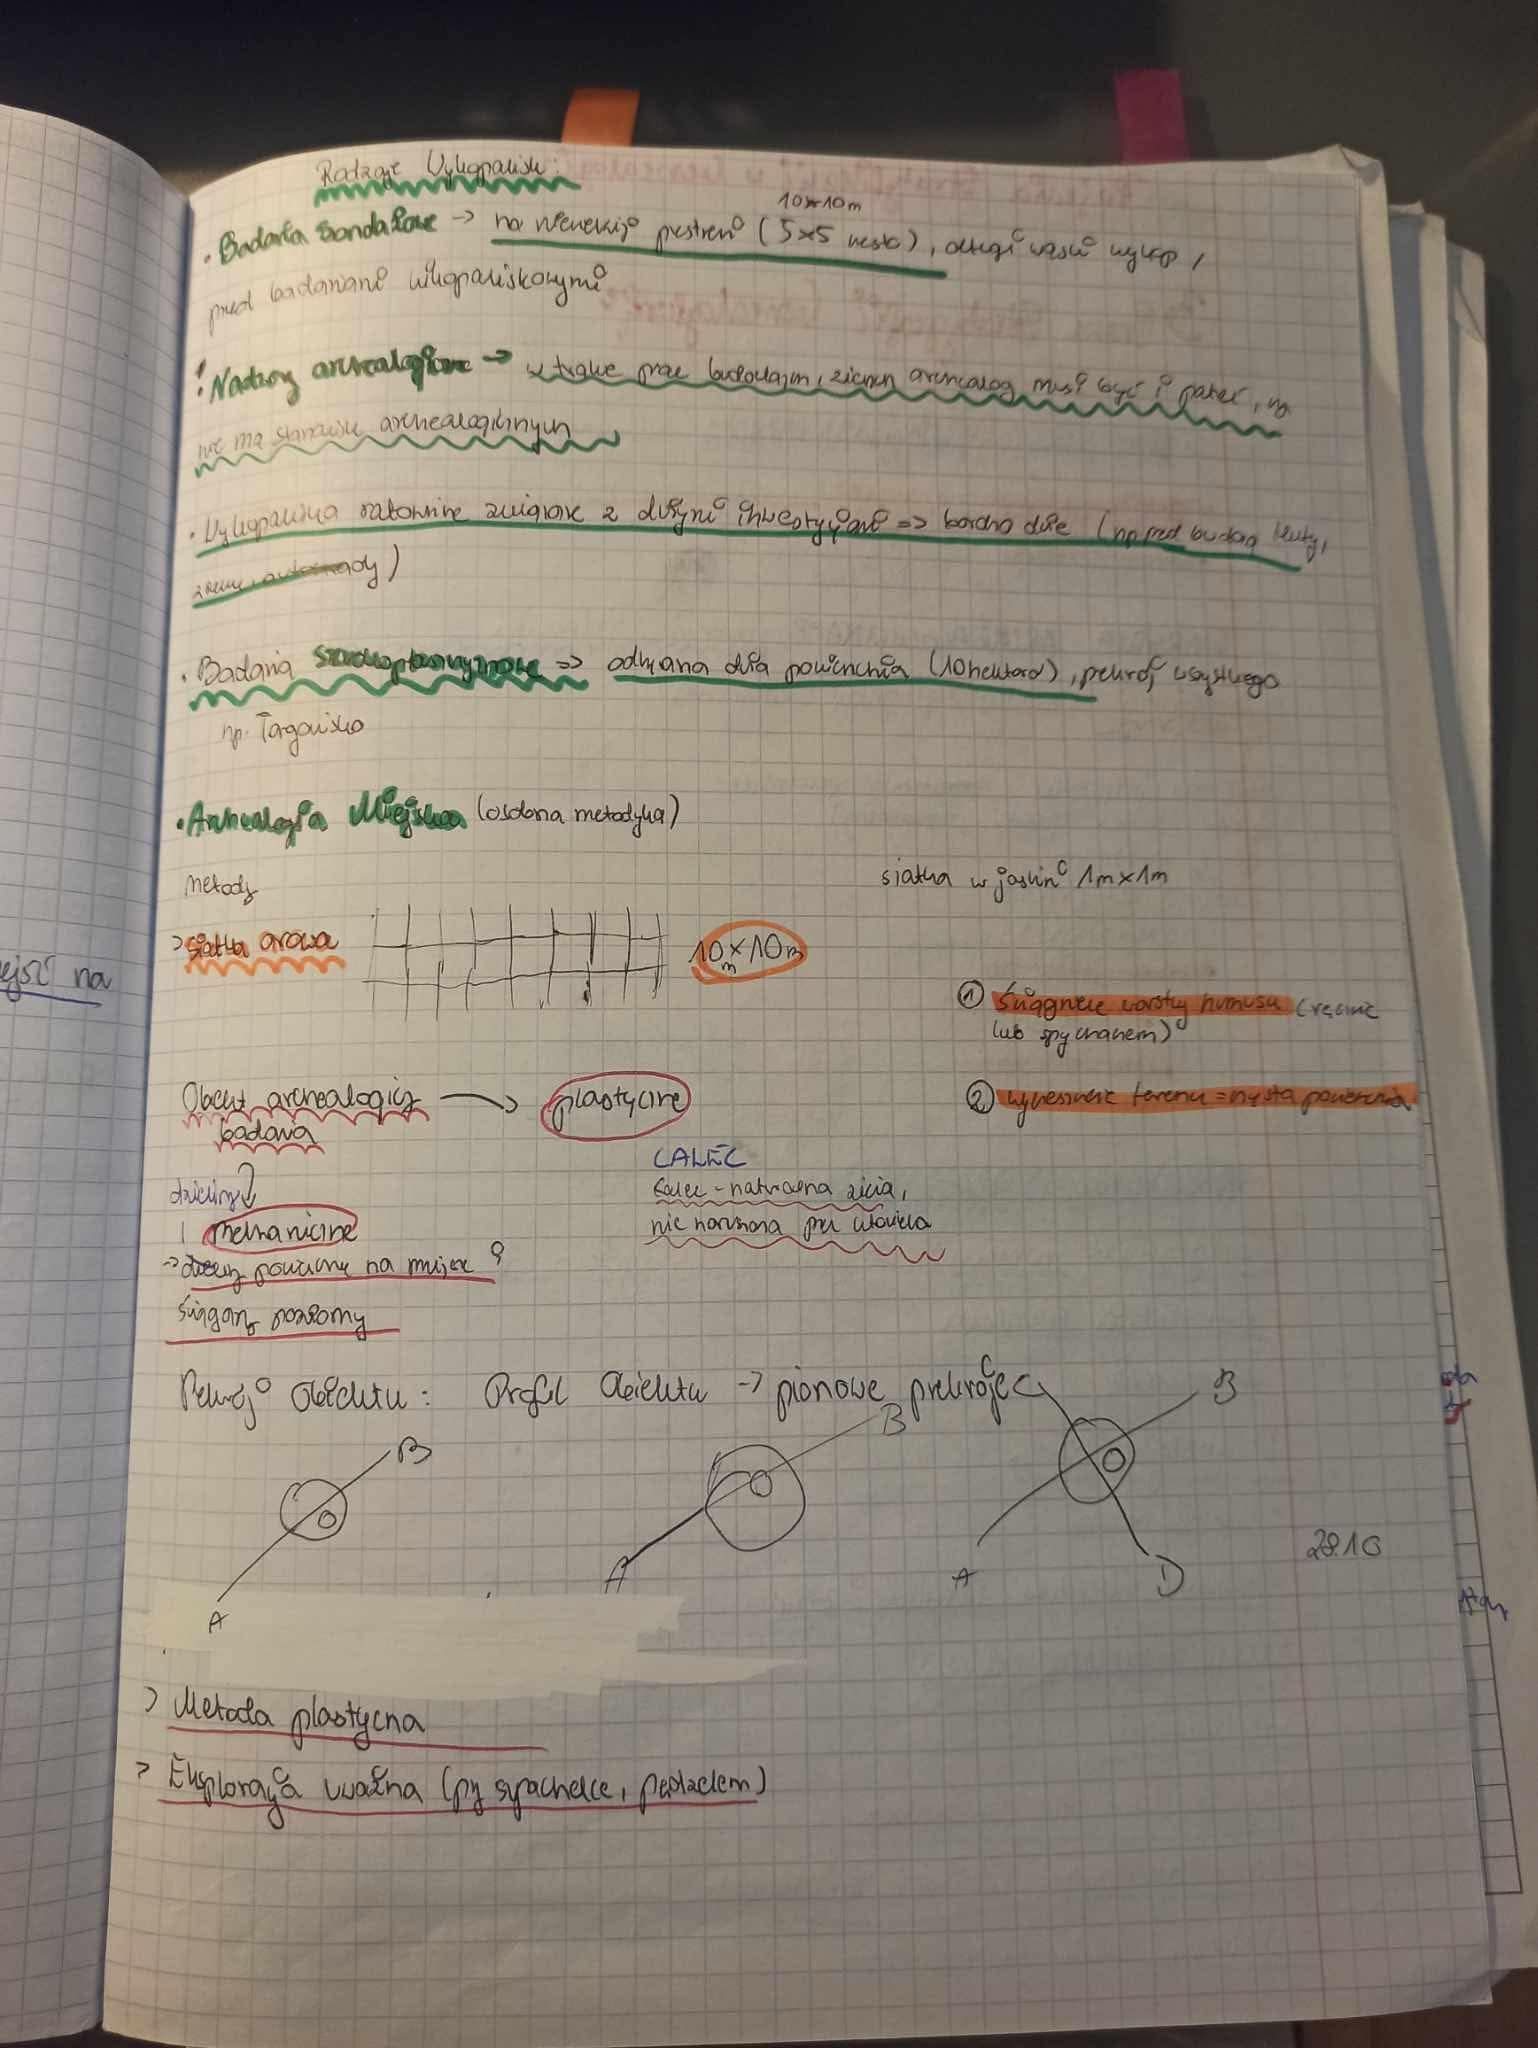 Rodzaje Wykopalisk:
10x10m
• Badania Sondażowe → na niewielkiej przestrzeni (5x5 ), długi wąski wykop,
przed badaniami wykopaliskowymi
! Nadzory archealogiczne → w trakcie prac budowlanych, archealog musi być i patrzeć, czy
nie ma stanowisk archealogicznych
• Wykopaliska ratownicze związane z dużymi inwestycjami => bardzo duże (np przed budową huty,
autostrady)
• Badania szerokopłaszczyznowe => odkrywana duża powierzchnia (10 hektarów), przekrój wszystkiego
np. Targowisko
• Archealogia Miejska (osobna metodyka)
metody
siatka w jaskini 1m x 1m
> siatka arowa
10 m x 10 m
① Ściągnięcie warstwy humusu (ręcznie
lub spychaczem)
Obiekt archealogiczny → plastyczne
badania
② terenu = czysta powierzchnia
CALEC
calec - naturalna ziemia,
nie naruszona przez człowieka
dzielimy
| mechaniczne
→ powierzchnię na mniejsze
ściągamy poziomy
Przekrój obiektu: Profil Obiektu → pionowe przekroje
C
B
B
B
A
A
A
D
28.10
> Metoda plastyczna
> Eksploracja uważna (przy szpachelce, pędzelem)
ejść na